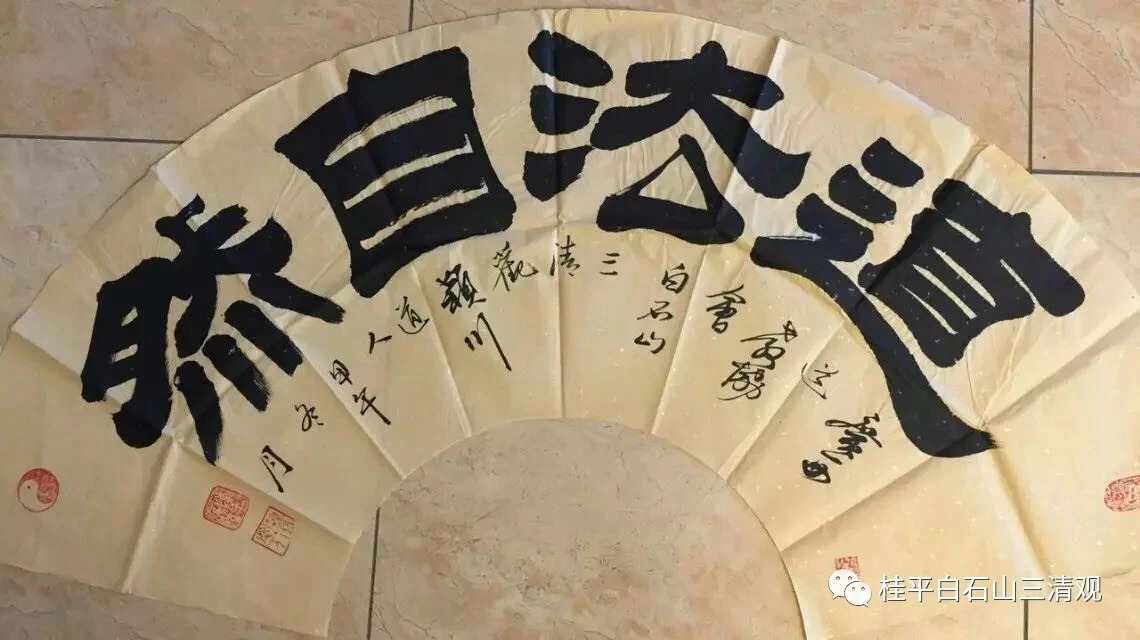 道法自然
廣西道教協會白石山三清觀穎川道人甲午冬月
桂平白石山三清观